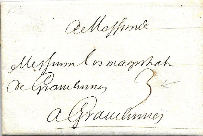 a Messieurs
Messieurs les magistrats
de Gravelinnes 3
a Gravelinnes